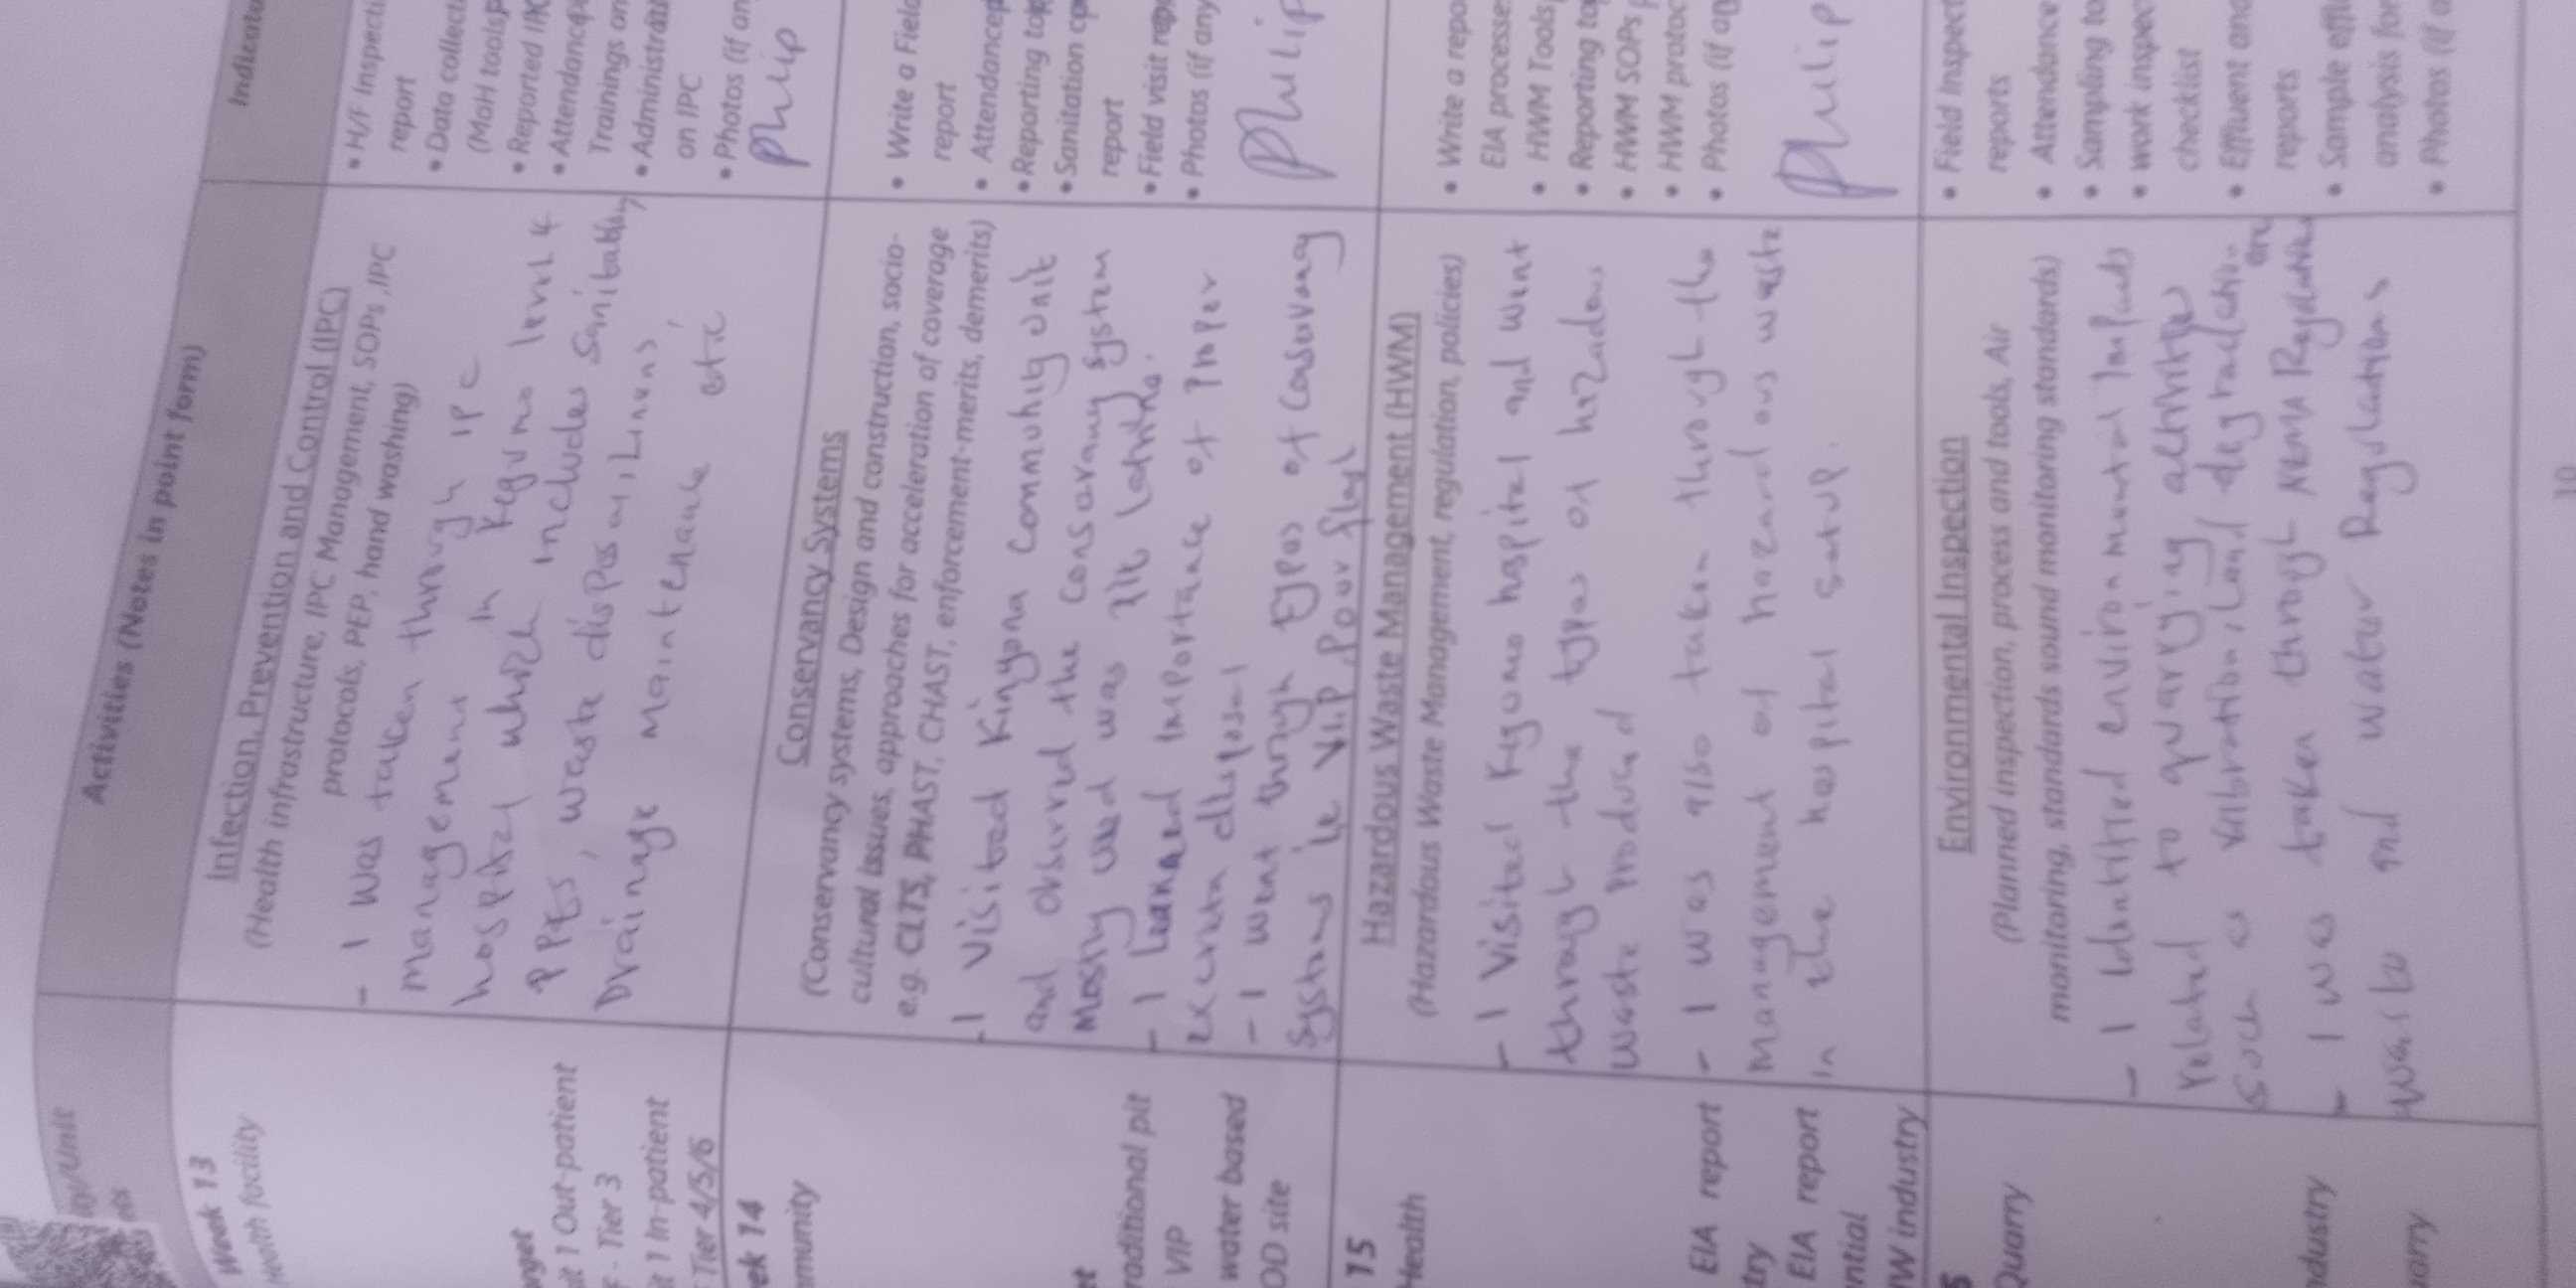 Activities (Notes in point form)
Indicato
Week 13
Health facility
it 1 Out-patient
- Tier 3
it 1 In-patient
Tier 4/5/6
Infection, Prevention and Control (IPC)
(Health infrastructure, IPC Management, SOPs, IPC
protocols, PEP, hand washing)
- I was taken through IPC
management in Keguno level 4
hospital which includes sanitability
PPEs, waste disposal, Linens,
Drainage maintenance etc
• H/F Inspecti
report
• Data collect
(MoH tools
• Reported IPC
• Attendance
Trainings an
• Administrati
on IPC
• Photos (if an
Philip
ek 14
mmunity
raditional pit
VIP
water based
OD site
Conservancy Systems
(Conservancy systems, Design and construction, socio-
cultural issues, approaches for acceleration of coverage
e.g. CLTS, PHAST, CHAST, enforcement-merits, demerits)
- I visited Kingona community unit
and observed the conservany system
mostly used was Pit latrine.
- I learned importance of proper
excreta disposal
- I went through types of conservancy
systems ie V.I.P, Pour flush
• Write a Field
report
• Attendance
• Reporting
• Sanitation
report
• Field visit rep
• Photos (if any
Philip
15
Health
EIA report
try
EIA report
ntial
W industry
Hazardous Waste Management (HWM)
(Hazardous Waste Management, regulation, policies)
- I visited Keguno hospital and went
through the types of hazadous
waste produced
- I was also taken through the
management of hazardous waste
in the hospital setup.
• Write a repo
EIA processe
• HWM Tools
• Reporting to
• HWM SOPs
• HWM protoc
• Photos (if an
Philip
Quarry
ndustry
arry
Environmental Inspection
(Planned inspection, process and tools, Air
monitoring, standards sound monitoring standards)
- I identified environmental impacts
related to quarrying activities
such as vibration, Land degradation
- I was taken through NEMA Regulation
waste and water Regulations
• Field Inspect
reports
• Attendance
• Sampling to
• work inspec
checklist
• Effluent and
reports
• Sample efflu
analysis for
• Photos (if a